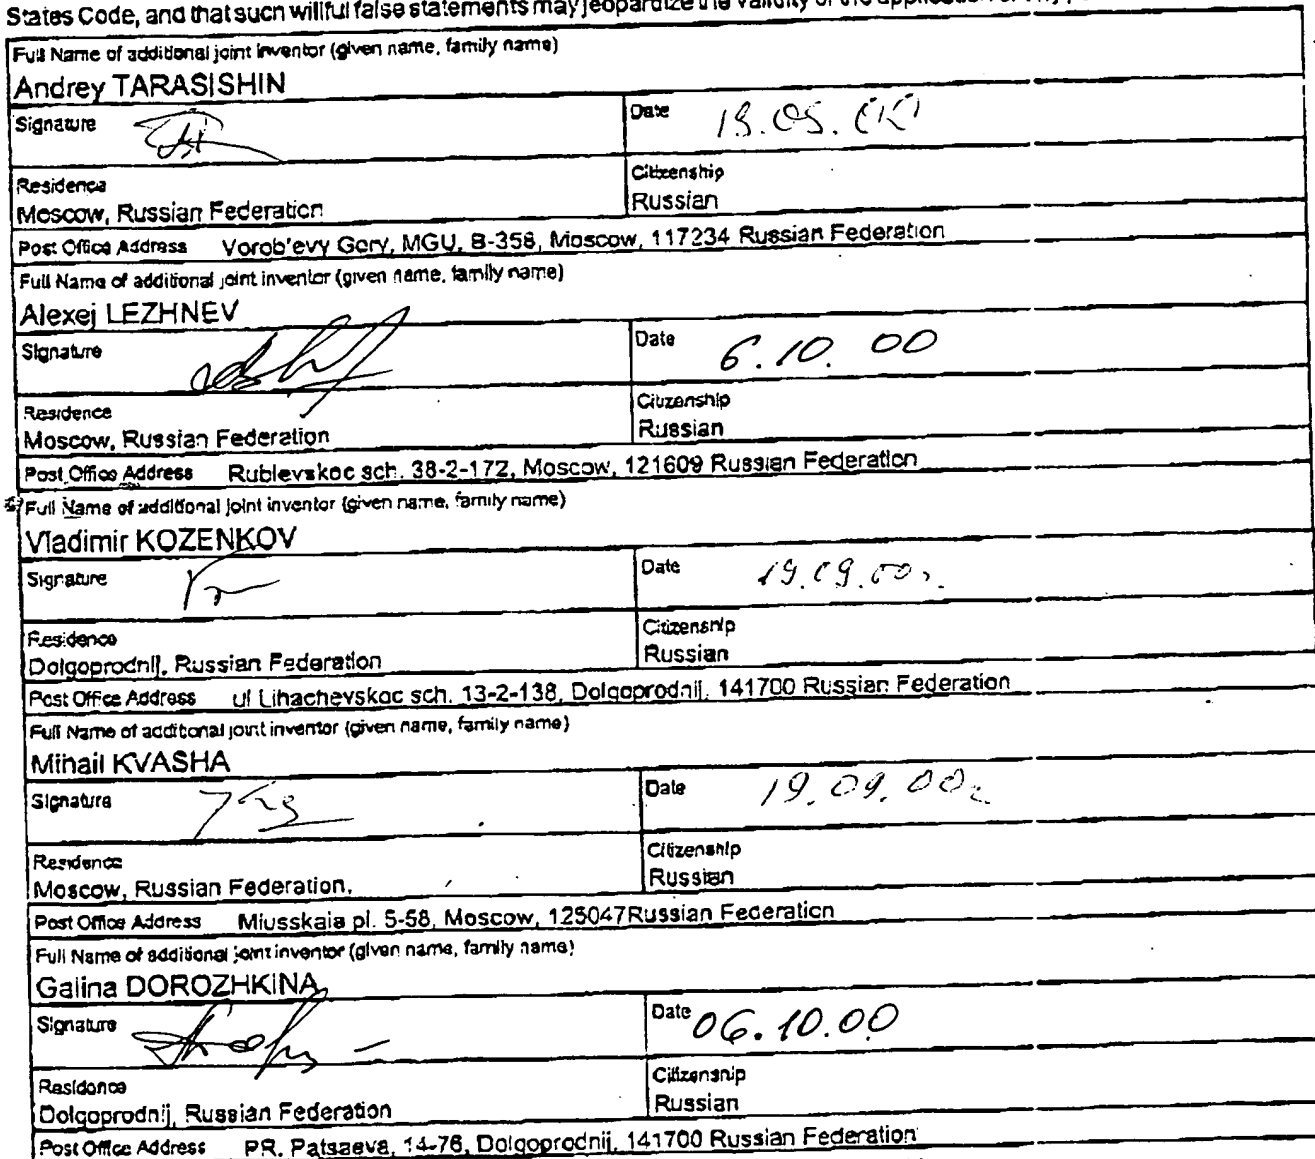 States Code, and that such willful false statements may jeopardize the validity of the application
Full Name of additional joint inventor (given name, family name)
Andrey TARASISHIN
Signature
Date
Residence
Moscow, Russian Federation
Citizenship
Russian
Post Office Address Vorob'evy Gory, MGU, B-358, Moscow, 117234 Russian Federation
Full Name of additional joint inventor (given name, family name)
Alexej LEZHNEV
Signature
Date 6.10.00
Residence
Moscow, Russian Federation
Citizenship
Russian
Post Office Address Rublevskoc sch. 38-2-172, Moscow, 121609 Russian Federation
Full Name of additional joint inventor (given name, family name)
Vladimir KOZENKOV
Signature
Date 19.09.00г.
Residence
Dolgoprodnij, Russian Federation
Citizenship
Russian
Post Office Address ul Lihachevskoc sch. 13-2-138, Dolgoprodnij, 141700 Russian Federation
Full Name of additional joint inventor (given name, family name)
Mihail KVASHA
Signature
Date 19.09.00г
Residence
Moscow, Russian Federation,
Citizenship
Russian
Post Office Address Miusskaia pl. 5-58, Moscow, 125047 Russian Federation
Full Name of additional joint inventor (given name, family name)
Galina DOROZHKINA
Signature
Date 06.10.00
Residence
Dolgoprodnij, Russian Federation
Citizenship
Russian
Post Office Address PR. Patsaeva, 14-76, Dolgoprodnij, 141700 Russian Federation